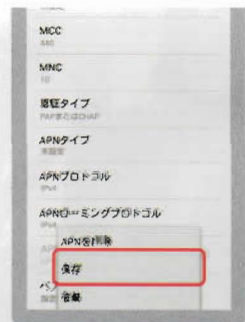 MCC
440
MNC
10
認証タイプ
PAPまたはCHAP
APNタイプ
未設定
APNプロトコル
IPv4
APNローミングプロトコル
IPv4
APNを削除
保存
破棄